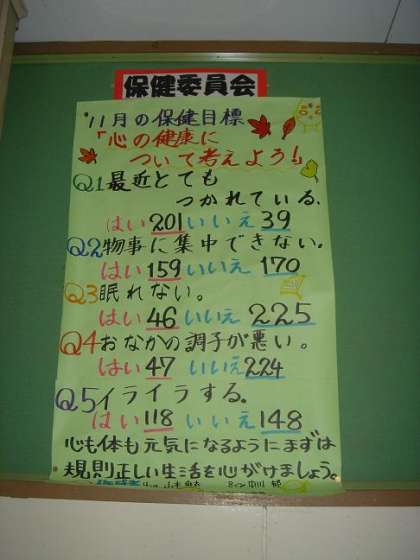 保健委員会
11月の保健目標
「心の健康に
ついて考えよう!」
Q1最近とても
つかれている。
はい201いいえ39
Q2物事に集中できない。
はい159いいえ170
Q3眠れない。
はい46いいえ225
Q4おなかの調子が悪い。
はい47いいえ224
Q5イライラする。
はい118いいえ148
心も体も元気になるようにまずは
規則正しい生活を心がけましょう。